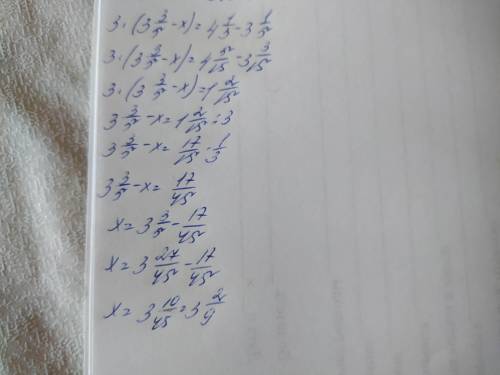 3·(3 3/5 - x) = 4 1/3 - 3 1/5
3·(3 3/5 - x) = 4 5/15 - 3 3/15
3·(3 3/5 - x) = 1 2/15
3 3/5 - x = 1 2/15 : 3
3 3/5 - x = 17/15 · 1/3
3 3/5 - x = 17/45
x = 3 3/5 - 17/45
x = 3 27/45 - 17/45
x = 3 10/45 = 3 2/9